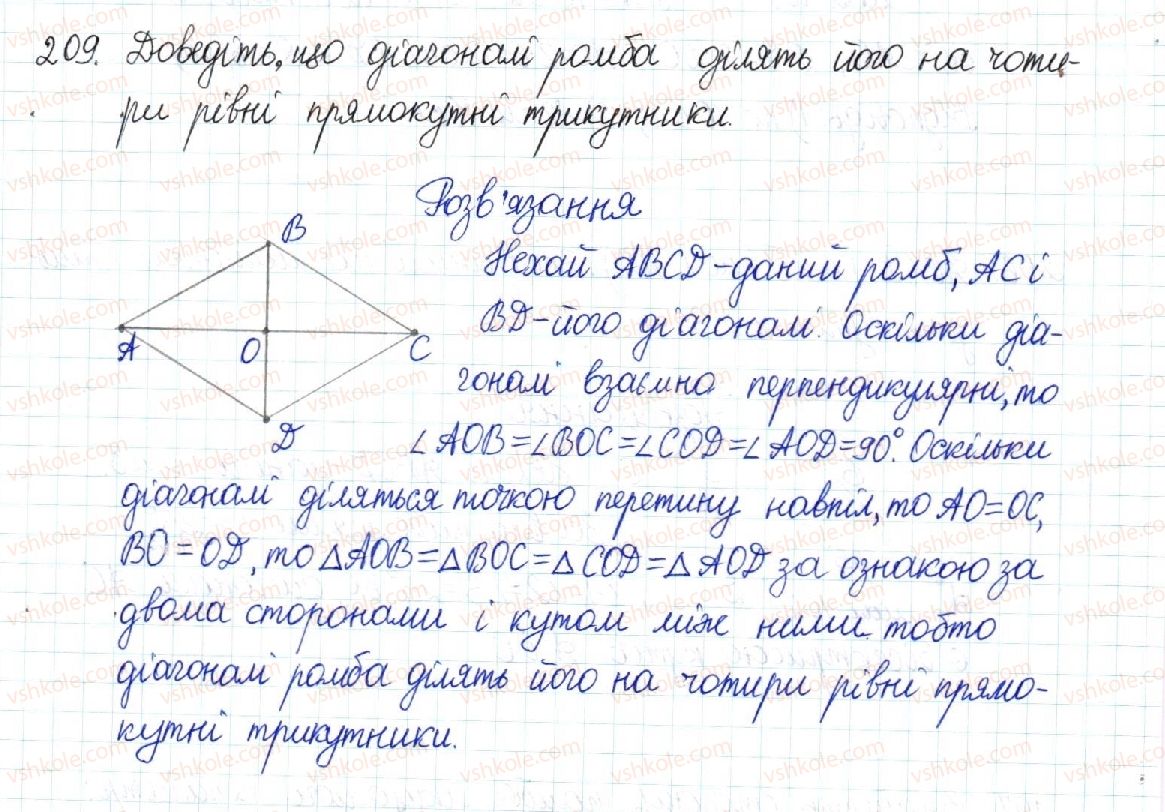 209. Доведіть, що діагоналі ромба ділять його на чоти-
ри рівні прямокутні трикутники.
Розв'язання
Нехай ABCD-даний ромб, AC і
BD-його діагоналі. Оскільки діа-
гоналі взаємно перпендикулярні, то
∠AOB=∠BOC=∠COD=∠AOD=90°. Оскільки
діагоналі діляться точкою перетину навпіл, то AO=OC,
BO=OD, то △AOB=△BOC=△COD=△AOD за ознакою за
двома сторонами і кутом між ними тобто
діагоналі ромба ділять його на чотири рівні прямо-
кутні трикутники.
B
A
O
C
D
vshkole.com